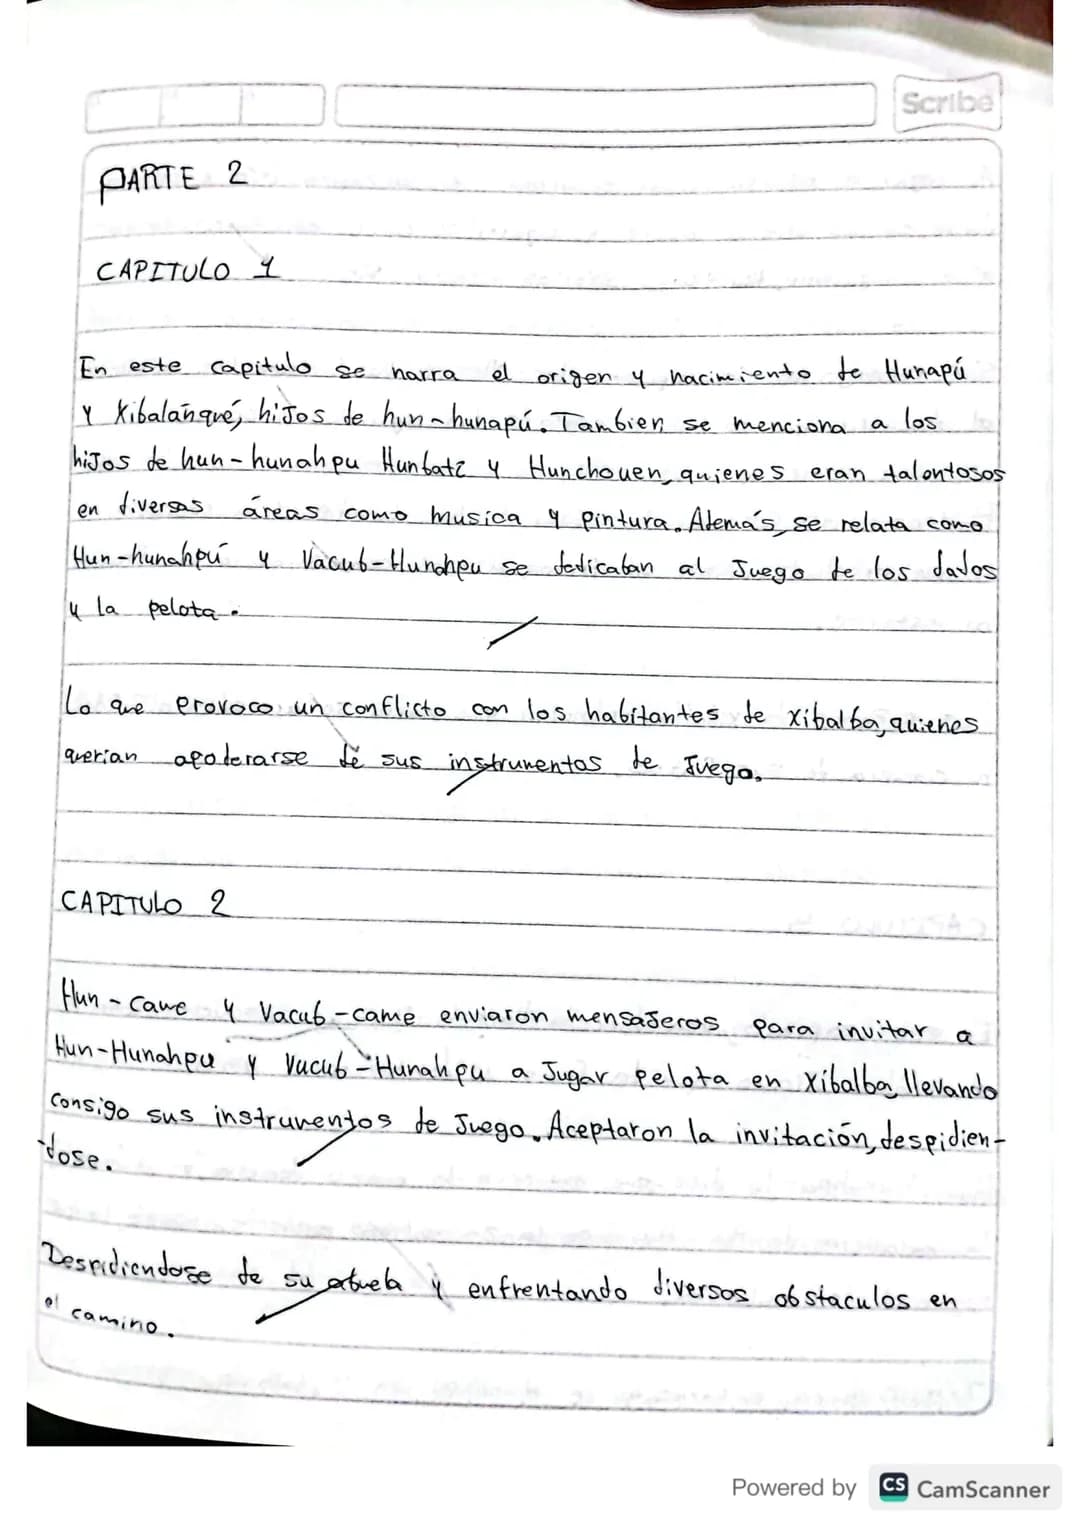 Scribe
PARTE 2
CAPITULO 1
En este capitulo se narra el origen y nacimiento de Hunapú
y Xibalanqué, hijos de hun-hunapú. Tambien se menciona a los
hijos de hun-hunahpu Hunbatz y Hunchouen, quienes eran talontosos
en diversas áreas como musica y pintura. Además, se relata como
Hun-hunahpú y Vacub-Hunahpu se dedicaban al Juego de los dados
y la pelota.
Lo que provoco un conflicto con los habitantes de xibalba, quienes
querian apoderarse de sus instrumentos de Juego.
CAPITULO 2
Hun-came y Vacub-came enviaron mensajeros para invitar a
Hun-Hunahpu y Vucub-Hunahpu a Jugar pelota en xibalba, llevando
consigo sus instrumentos de Juego. Aceptaron la invitación, despidien-
-dose.
Despidiendose de su abuela y enfrentando diversos obstaculos en
el camino.
Powered by CS CamScanner